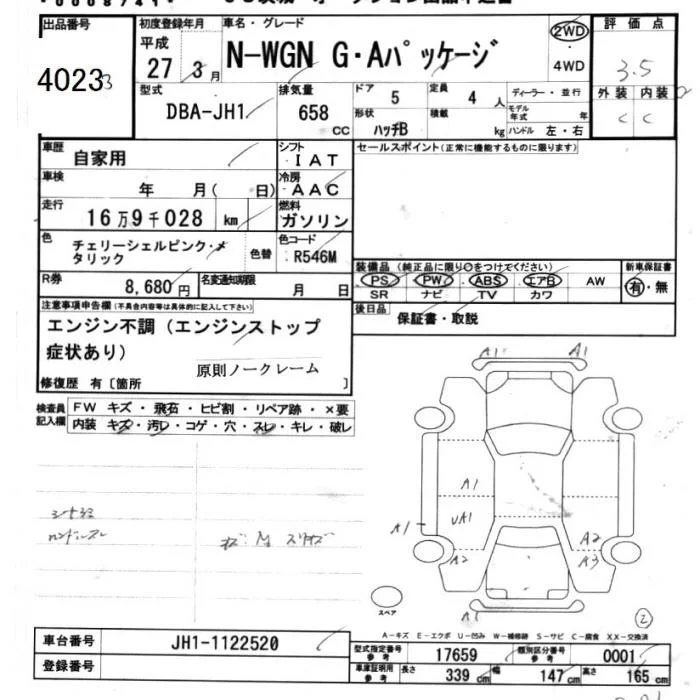 出品番号 初度登録年月 車名・グレード 2WD 評価点
40233 平成 27年 3月 N-WGN G・Aパッケージ 4WD 3.5
型式 排気量 ドア 5 定員 4人 ディーラー・並行 外装 内装
DBA-JH1 658 CC 形状 ハッチB 積載 kg モデル年式 年 ハンドル 左・右 C C
車歴 自家用 シフト IAT セールスポイント(正常に機能するものに限ります)
車検 年 月( 日) 冷房 AAC
走行 16万9千028 km 燃料 ガソリン
色 チェリーシェルピンク・メタリック 色替 色コード R546M
装備品 (純正品に限り○をつけてください) 新車保証書
R券 8,680円 名変通知期限 月 日 PS PW ABS エアB AW 有・無
SR ナビ TV カワ
注意事項申告欄(不具合内容等は具体的に記入して下さい) 後日品 保証書・取説
エンジン不調(エンジンストップ
症状あり) 原則ノークレーム
修復歴 有〔箇所 〕
検査員記入欄 FW キズ・飛石・ヒビ割・リペア跡・×要
内装 キズ・汚レ・コゲ・穴・スレ・キレ・破レ
A1 A1
A1
UA1
A1 A2
A2 A3
A1
スペア
②
A-キズ E-エクボ U-凹み W-補修跡 S-サビ C-腐食 XX-交換済
車台番号 JH1-1122520 型式指定番号 参考 17659 類別区分番号 参考 0001
登録番号 車庫証明用 参考 長さ 339 cm 幅 147 cm 高さ 165 cm